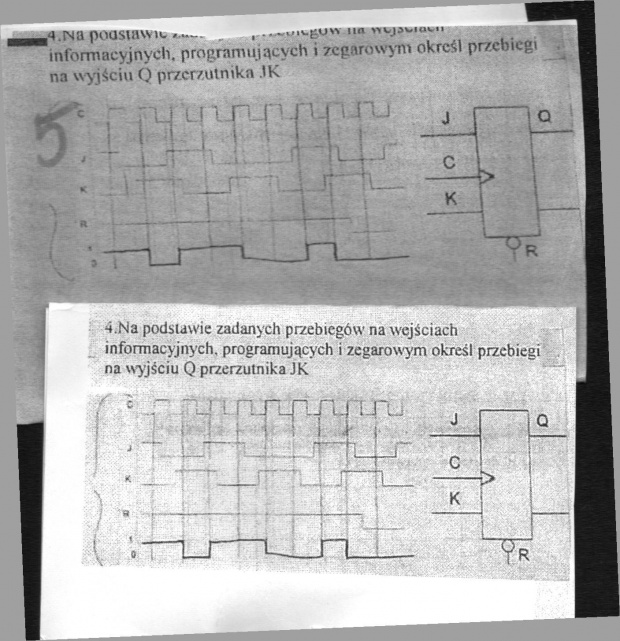 4.Na podstawie
informacyjnych, programujących i zegarowym określ przebiegi
na wyjściu Q przerzutnika JK
5
C
J
K
R
1
0
J
Q
C
K
R
4.Na podstawie zadanych przebiegów na wejściach
informacyjnych, programujących i zegarowym określ przebiegi
na wyjściu Q przerzutnika JK
C
J
K
R
1
0
J
Q
C
K
R